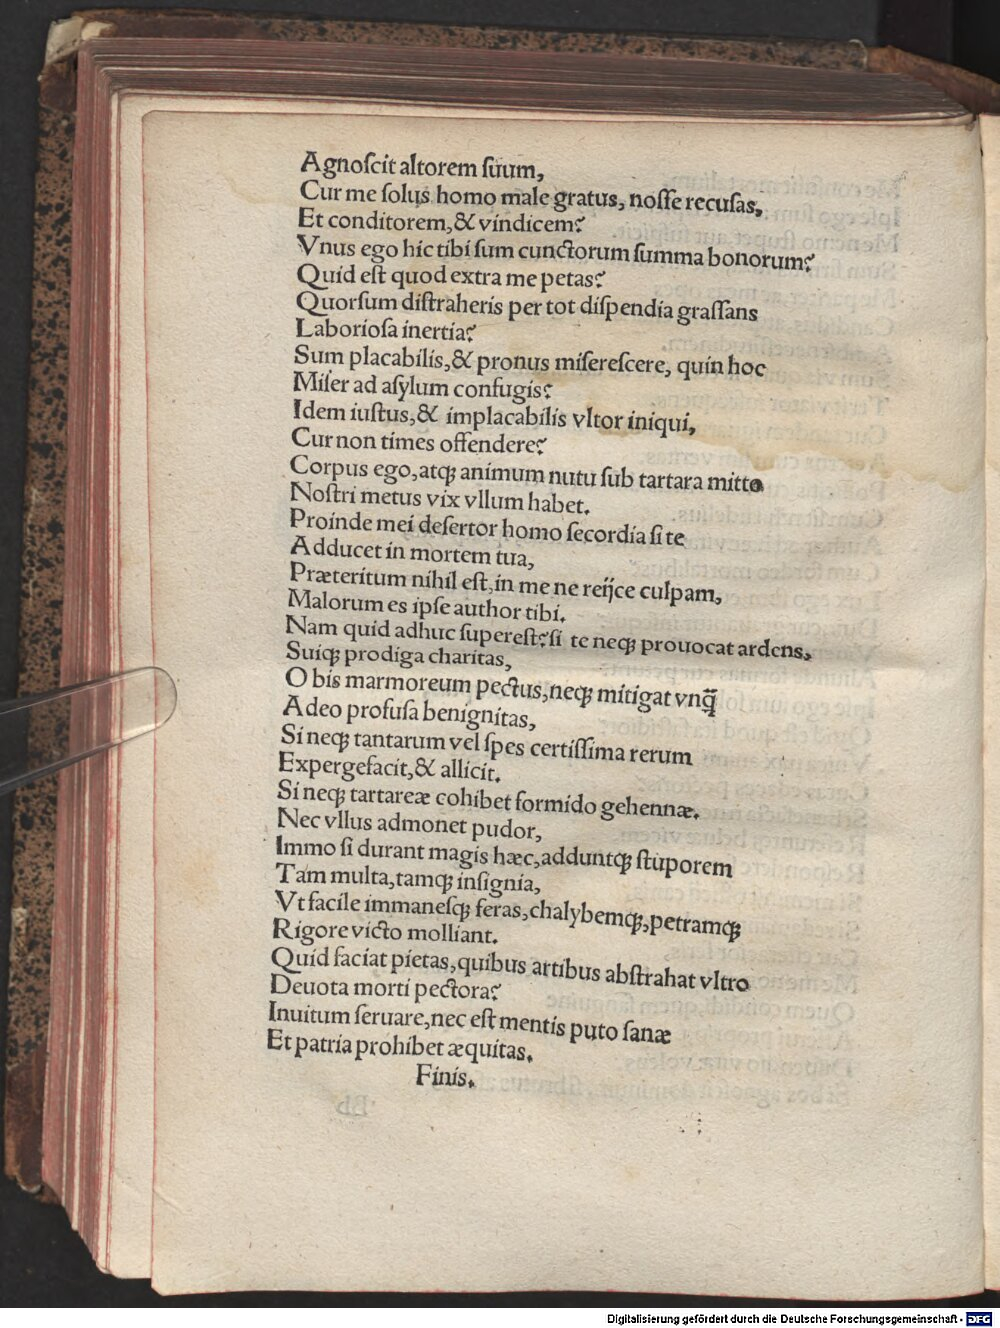 Agnoſcit altorem ſuum,
Cur me ſolus homo male gratus, noſſe recuſas,
Et conditorem,& vindicem?
Vnus ego hic tibi ſum cunctorum ſumma bonorum?
Quid eſt quod extra me petas?
Quorſum diſtraheris per tot diſpendia graſſans
Laborioſa inertia?
Sum placabilis,& pronus miſereſcere, quin hoc
Miſer ad aſylum confugis?
Idem iuſtus,& implacabilis vltor iniqui,
Cur non times offendere?
Corpus ego,atqꝫ animum nutu ſub tartara mitto
Noſtri metus vix vllum habet.
Proinde mei deſertor homo ſecordia ſi te
Adducet in mortem tua,
Præteritum nihil eſt,in me ne reijce culpam,
Malorum es ipſe author tibi.
Nam quid adhuc ſupereſt?ſi te neqꝫ prouocat ardens,
Suiqꝫ prodiga charitas,
O bis marmoreum pectus,neqꝫ mitigat vnq̃
Adeo profuſa benignitas,
Si neqꝫ tantarum vel ſpes certiſſima rerum
Expergefacit,& allicit.
Si neqꝫ tartareæ cohibet formido gehennæ.
Nec vllus admonet pudor,
Immo ſi durant magis hæc,adduntqꝫ ſtuporem
Tam multa,tamqꝫ inſignia,
Vt facile immaneſqꝫ feras,chalybemqꝫ,petramqꝫ
Rigore victo molliant.
Quid faciat pietas,quibus artibus abſtrahat vltro
Deuota morti pectora?
Inuitum ſeruare,nec eſt mentis puto ſanæ
Et patria prohibet æquitas.
Finis.
Digitalisierung gefördert durch die Deutsche Forschungsgemeinschaft - DFG